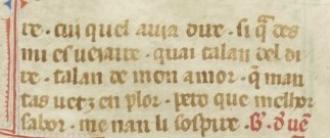 te · cui quel auia dure · si q̃ tes
mi es ueiaire · quai talan del di
re · talan de mon amor · q̃ man
tas uetz en plor · pero que melhor
sabor · me nan li sospire · G̃. d̃ uẽ